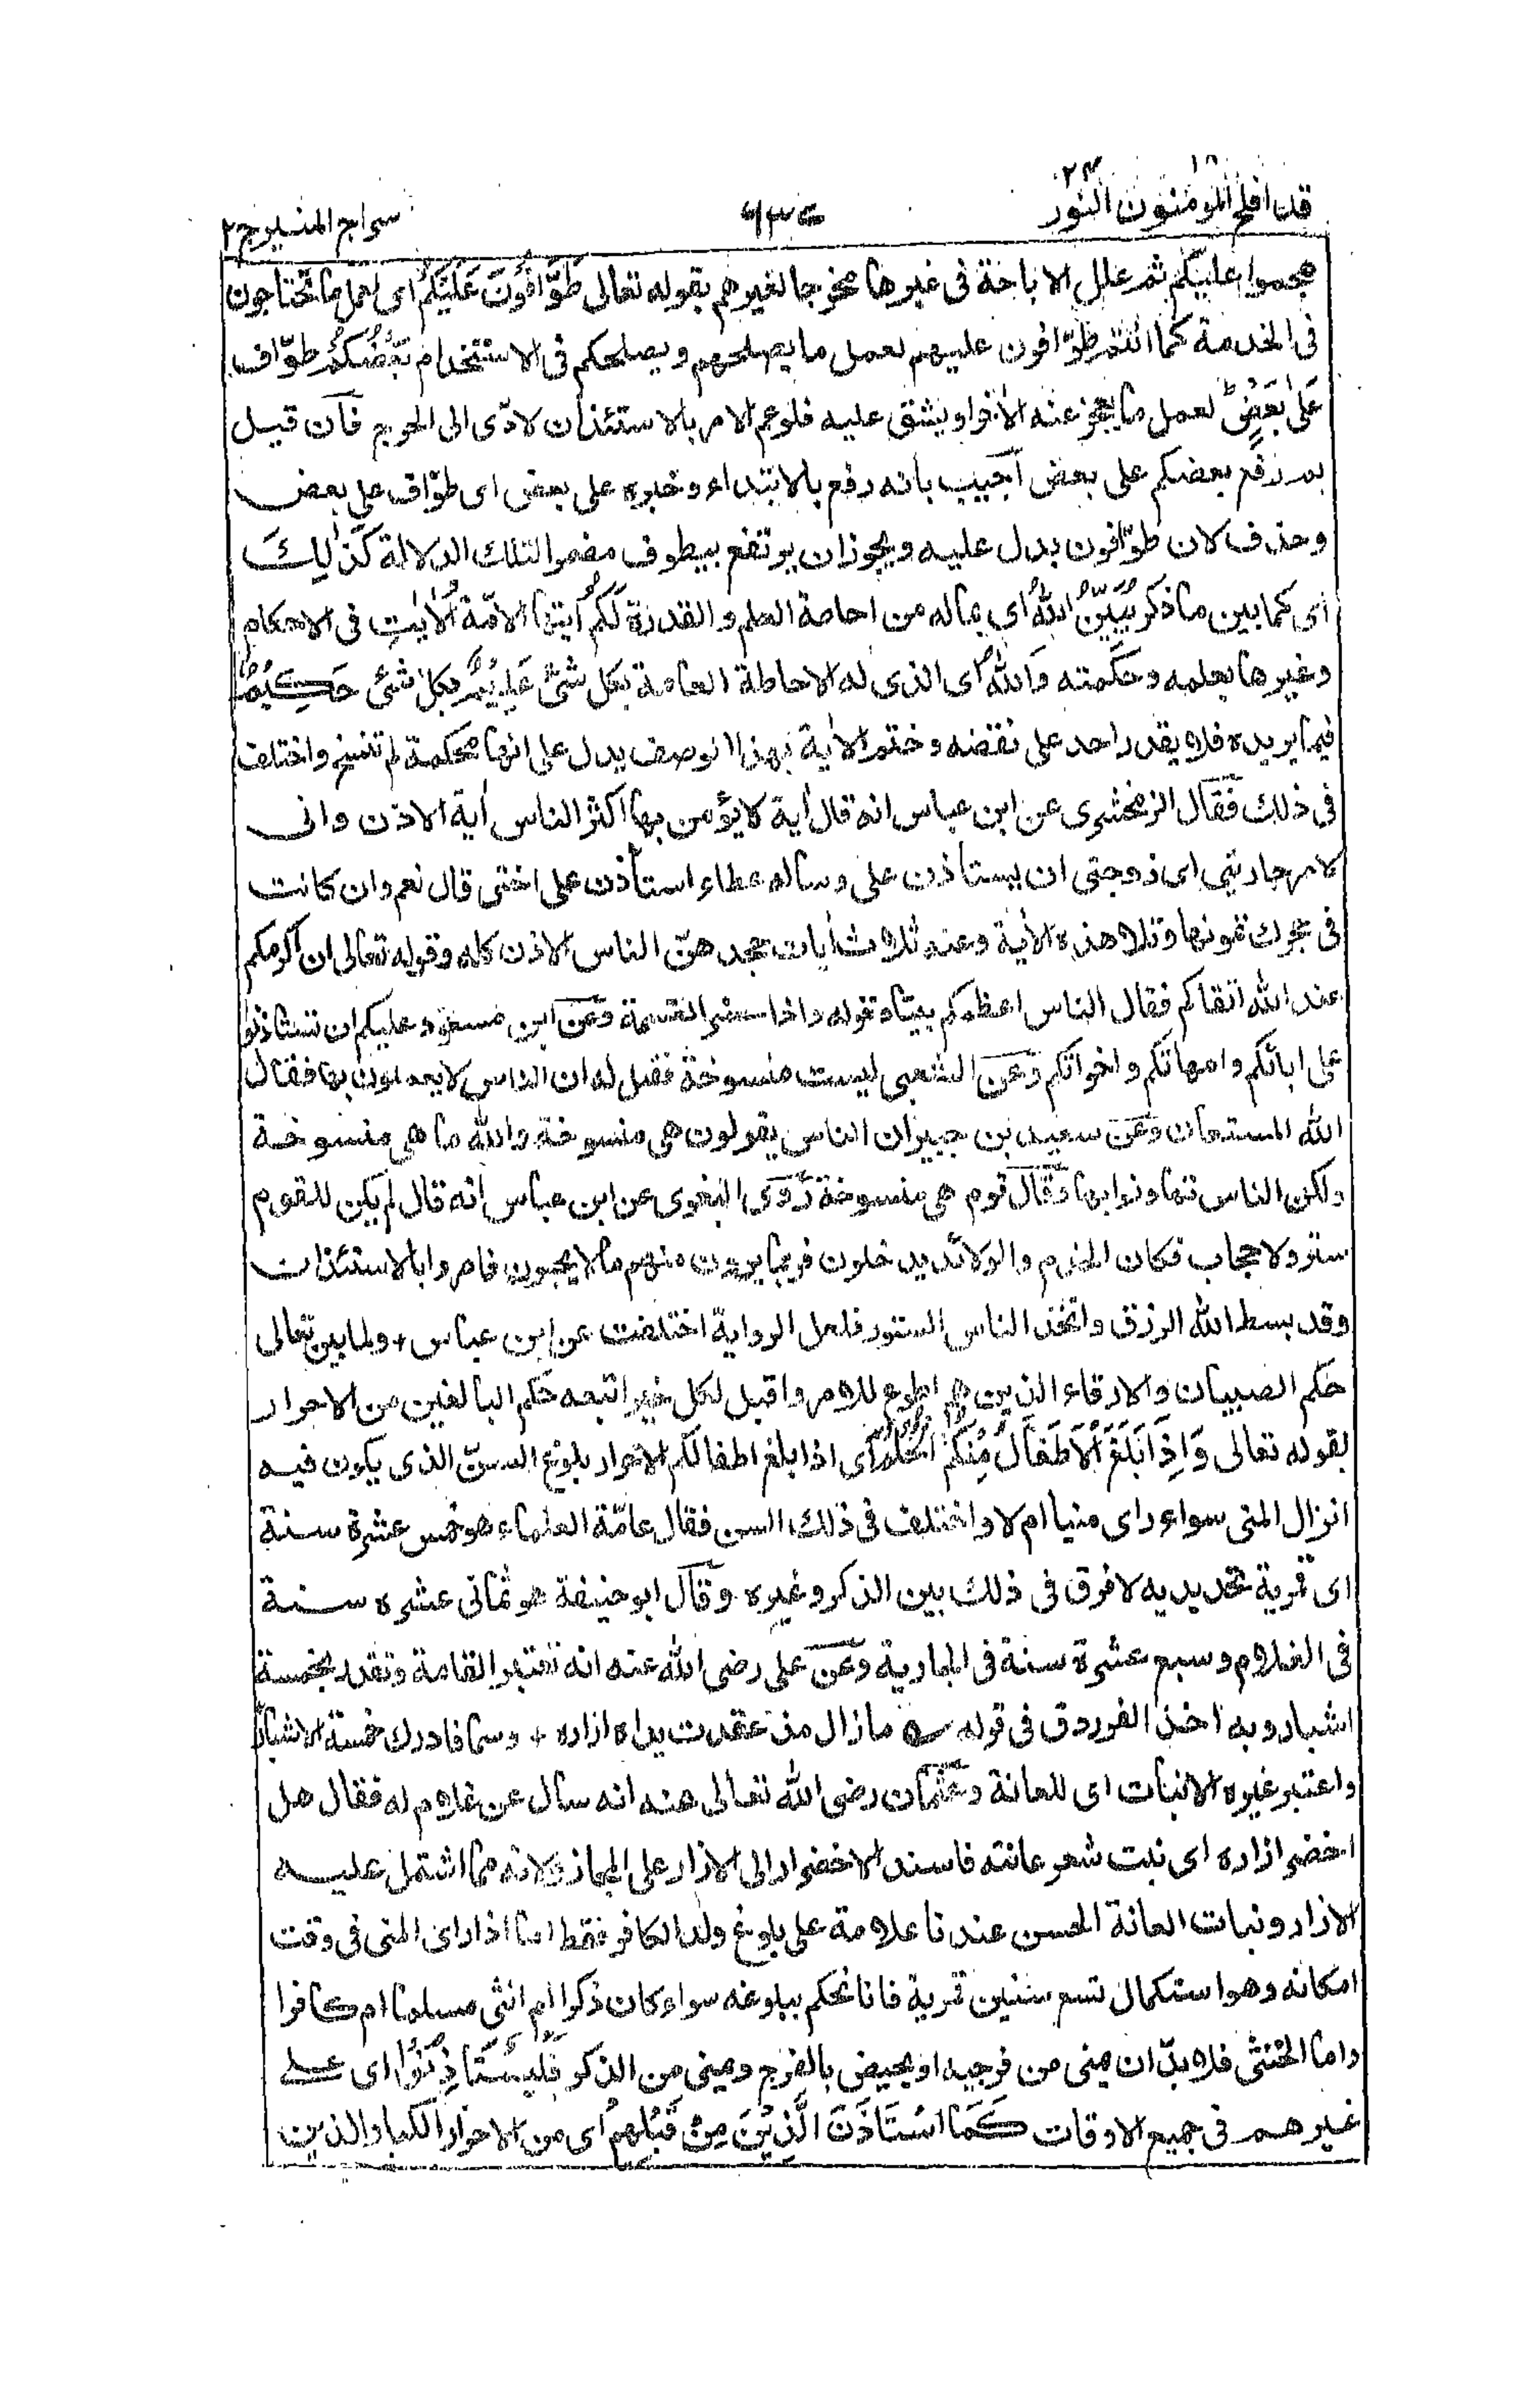 قد افلح المؤمنون ١٨ النور ٢٤
٦٣٤
سراج المنير ج ٢
هجموا عليكم ثم علل الاباحة في غيرها مخرجا لغيرهم بقوله تعالى طَوَّافُونَ عَلَيْكُمْ اى لعمل ما تحتاجون
فى الخدمة كما انتم طوّافون عليهم لعمل ما يصلحهم ويصلحكم فى الاستخدام بَعْضُكُمْ طوّاف
عَلٰى بَعْضٍ لعمل ما يعجز عنه الاٰخر او يشق عليه فلو عم الامر بالاستئذان لادّى الى الحرج فان قيل
بم رفع بعضكم على بعض اجيب بانه رفع بالابتداء وخبره على بعض اى طوّاف على بعض
وحذف لان طوّافون يدل عليه ويجوز ان يرتفع بيطوف مضمرا لتلك الدلالة كَذٰلِكَ
اى كما بين ما ذكر يُبَيِّنُ اللّٰهُ اى بماله من احاصة العلم والقدرة لَكُمُ ايتها الامّة الْاٰيٰتِ فى الاحكام
وغيرها بعلمه وحكمته وَاللّٰهُ اى الذى له الاحاطة العامة بكل شئ عَلِيْمٌ بكل شئ حَكِيْمٌ
فيما يريده فلا يقدر احد على نقضه وختم الاٰية بهذا الوصف يدل على انها محكمة لم تنسخ واختلف
فى ذلك فقال الزمخشرى عن ابن عباس انه قال اٰية لا يؤمن بها اكثر الناس اٰية الاذن وانى
لاٰمر جاريتى اى زوجتى ان يستأذن على وساله عطاء استأذن على اختى قال نعم وان كانت
فى حجرك تمونها وتلا هذه الاٰية وعنه ثلاث اٰيات جحدهنّ الناس الاذن كله وقوله تعالى ان اكرمكم
عند اللّٰه اتقاكم فقال الناس اعظمكم بيتا وقوله واذا حضر القسمة وعن ابن مسعود عليكم ان تستاذنوا
على ابائكم وامهاتكم واخواتكم وعن الشعبى ليست منسوخة فقيل له ان الناس لا يعملون بها فقال
اللّٰه المستعان وعن سعيد بن جبير ان الناس يقولون هى منسوخة واللّٰه ما هى منسوخة
ولكن الناس تهاونوا بها وقال قوم هى منسوخة رَوَى البغوى عن ابن عباس انه قال لم يكن للقوم
ستر ولا حجاب فكان الخدم والولائد يدخلون فربما يرون منهم ما لا يحبون فامروا بالاستئذان
وقد بسط اللّٰه الرزق واتخذ الناس الستور فلعل الرواية اختلفت عن ابن عباس + ولما بين تعالى
حكم الصبيان والارقاء الذين هم اطوع للامر واقبل لكل خير اتبعه حكم البالغين من الاحرار
بقوله تعالى وَاِذَا بَلَغَ الْاَطْفَالُ مِنْكُمُ الْحُلُمَ اى اذا بلغ اطفالكم الاحرار بلوغ السنّ الذى يكون فيه
انزال المنى سواء راى منيا ام لا واختلف فى ذلك السن فقال عامّة العلماء هو خمس عشرة سنة
اى قمرية تحديديه لا فرق فى ذلك بين الذكر وغيره وقال ابو حنيفة هو ثمانى عشره سنة
فى الغلام وسبع عشرة سنة فى الجارية وعن على رضى اللّٰه عنه انه تعتبر القامة وتقدر بخمسة
اشبار وبه اخذ الفرزدق فى قوله ؎ ما زال مذ عقدت يداه ازاره + وسما فادرك خمسة الاشبار
واعتبر غيره الانبات اى للعانة وعن عثمان رضى اللّٰه تعالى عنه انه سأل عن غلام له فقال هل
اخضر ازاره اى نبت شعر عانته فاسند الاخضرار الى الازار على المجاز لانه مما اشتمل عليه
الازار ونبات العانة الخشن عندنا علامة على بلوغ ولد الكافر فقط اما اذا راى المنى فى وقت
امكانه وهو استكمال تسع سنين قمرية فانا نحكم ببلوغه سواء كان ذكرا ام انثى مسلما ام كافرا
واما الخنثى فلا بدّ ان يمنى من فرجيه او يحيض بالفرج ويمنى من الذكر فَلْيَسْتَأْذِنُوْا اى على
غيرهم فى جميع الاوقات كَمَا اسْتَاْذَنَ الَّذِيْنَ مِنْ قَبْلِهِمْ اى من الاحرار الكبار الذين